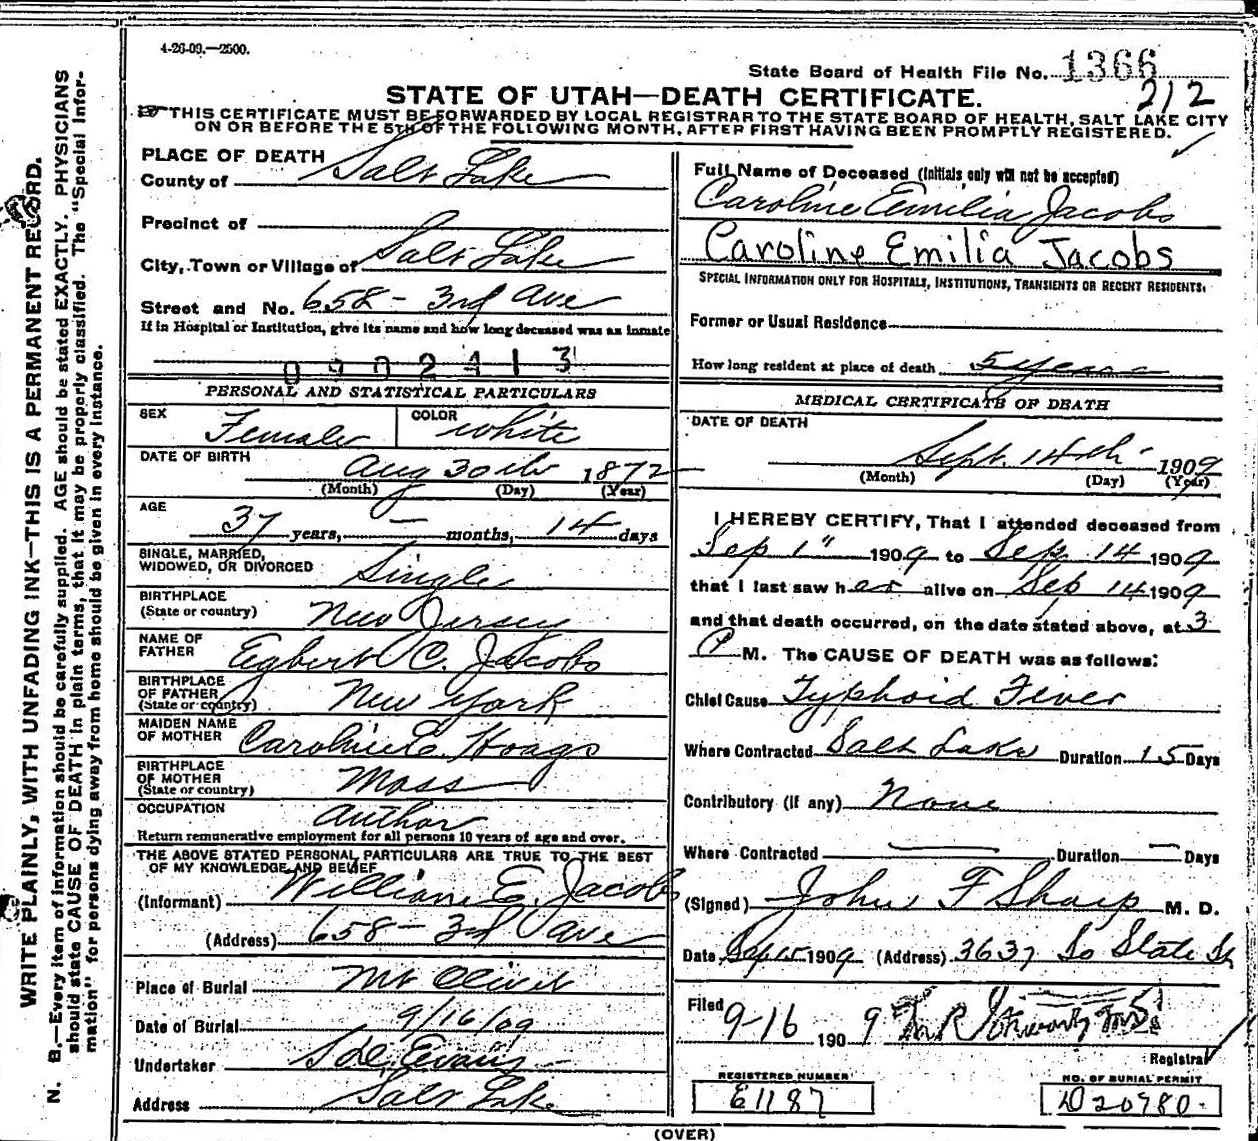 4-26-09.—2500.
State Board of Health File No. 1366
212
STATE OF UTAH—DEATH CERTIFICATE.
THIS CERTIFICATE MUST BE FORWARDED BY LOCAL REGISTRAR TO THE STATE BOARD OF HEALTH, SALT LAKE CITY
ON OR BEFORE THE 5TH OF THE FOLLOWING MONTH, AFTER FIRST HAVING BEEN PROMPTLY REGISTERED.
WRITE PLAINLY, WITH UNFADING INK—THIS IS A PERMANENT RECORD.
N. B.—Every item of information should be carefully supplied. AGE should be stated EXACTLY. PHYSICIANS
should state CAUSE OF DEATH in plain terms, that it may be properly classified. The "Special Infor-
mation" for persons dying away from home should be given in every instance.
PLACE OF DEATH
County of Salt Lake
Precinct of
City, Town or Village of Salt Lake
Street and No. 658 - 3rd Ave
If in Hospital or Institution, give its name and how long deceased was as inmate
PERSONAL AND STATISTICAL PARTICULARS
SEX Female COLOR White
DATE OF BIRTH Aug 30th 1872
(Month) (Day) (Year)
AGE 37 years, — months, 14 days
SINGLE, MARRIED,
WIDOWED, OR DIVORCED Single
BIRTHPLACE
(State or country) New Jersey
NAME OF
FATHER Egbert C. Jacobs
BIRTHPLACE
OF FATHER
(State or country) New York
MAIDEN NAME
OF MOTHER Caroline E. Hoags
BIRTHPLACE
OF MOTHER
(State or country) Mass
OCCUPATION Author
Return remunerative employment for all persons 10 years of age and over.
THE ABOVE STATED PERSONAL PARTICULARS ARE TRUE TO THE BEST
OF MY KNOWLEDGE AND BELIEF
(Informant) William E. Jacobs
(Address) 658 - 3rd Ave
Place of Burial Mt Olivet
Date of Burial 9/16/09
Undertaker Evans
Address Salt Lake
Full Name of Deceased (Initials only will not be accepted)
Caroline Emilia Jacobs
Caroline Emilia Jacobs
SPECIAL INFORMATION ONLY FOR HOSPITALS, INSTITUTIONS, TRANSIENTS OR RECENT RESIDENTS.
Former or Usual Residence
How long resident at place of death 5 years
MEDICAL CERTIFICATE OF DEATH
DATE OF DEATH
Sept. 14th 1909
(Month) (Day) (Year)
I HEREBY CERTIFY, That I attended deceased from
Sep 1" 1909 to Sep 14 1909
that I last saw her alive on Sep 14 1909
and that death occurred, on the date stated above, at 3
P M. The CAUSE OF DEATH was as follows:
Chief Cause Typhoid Fever
Where Contracted Salt Lake Duration 15 Days
Contributory (if any) None
Where Contracted — Duration — Days
(Signed) John F Sharp M. D.
Date Sep 15 1909 (Address) 3637 So State St
Filed 9-16 1909
Registrar
REGISTERED NUMBER
E1187
NO. OF BURIAL PERMIT
D20980
(OVER)